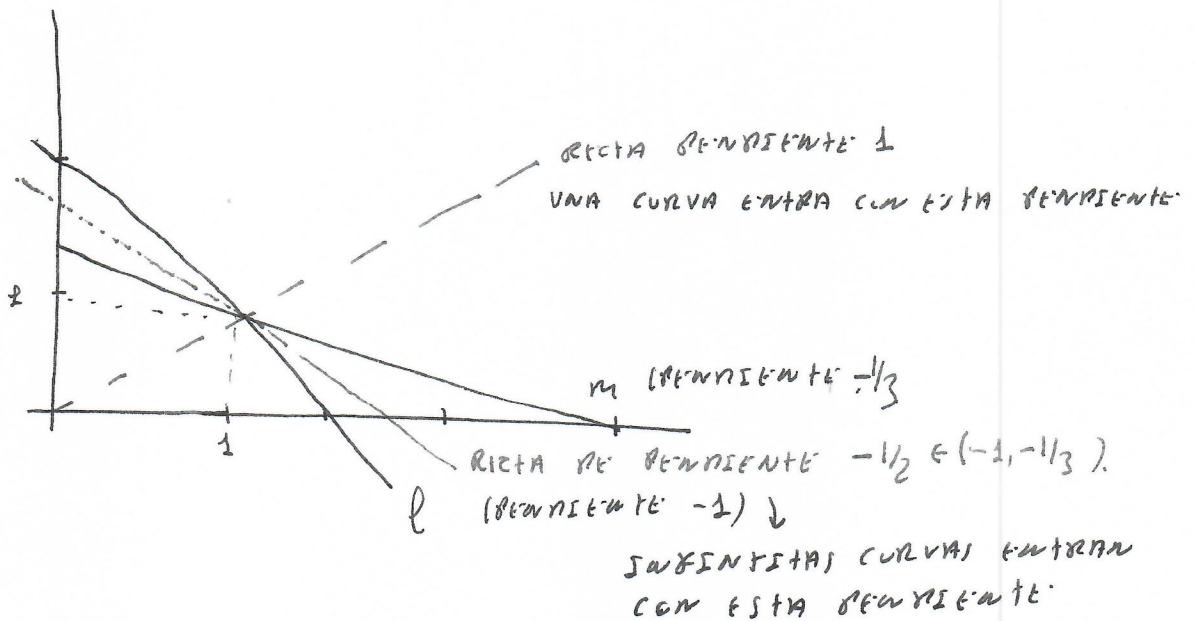 RECTA PENDIENTE 1
UNA CURVA ENTRA CON ESTA PENDIENTE
1
m (PENDIENTE -1/3
1
RECTA DE PENDIENTE -1/2 ∈ (-1, -1/3).
l (PENDIENTE -1) ↓
INFINITAS CURVAS ENTRAN
CON ESTA PENDIENTE.